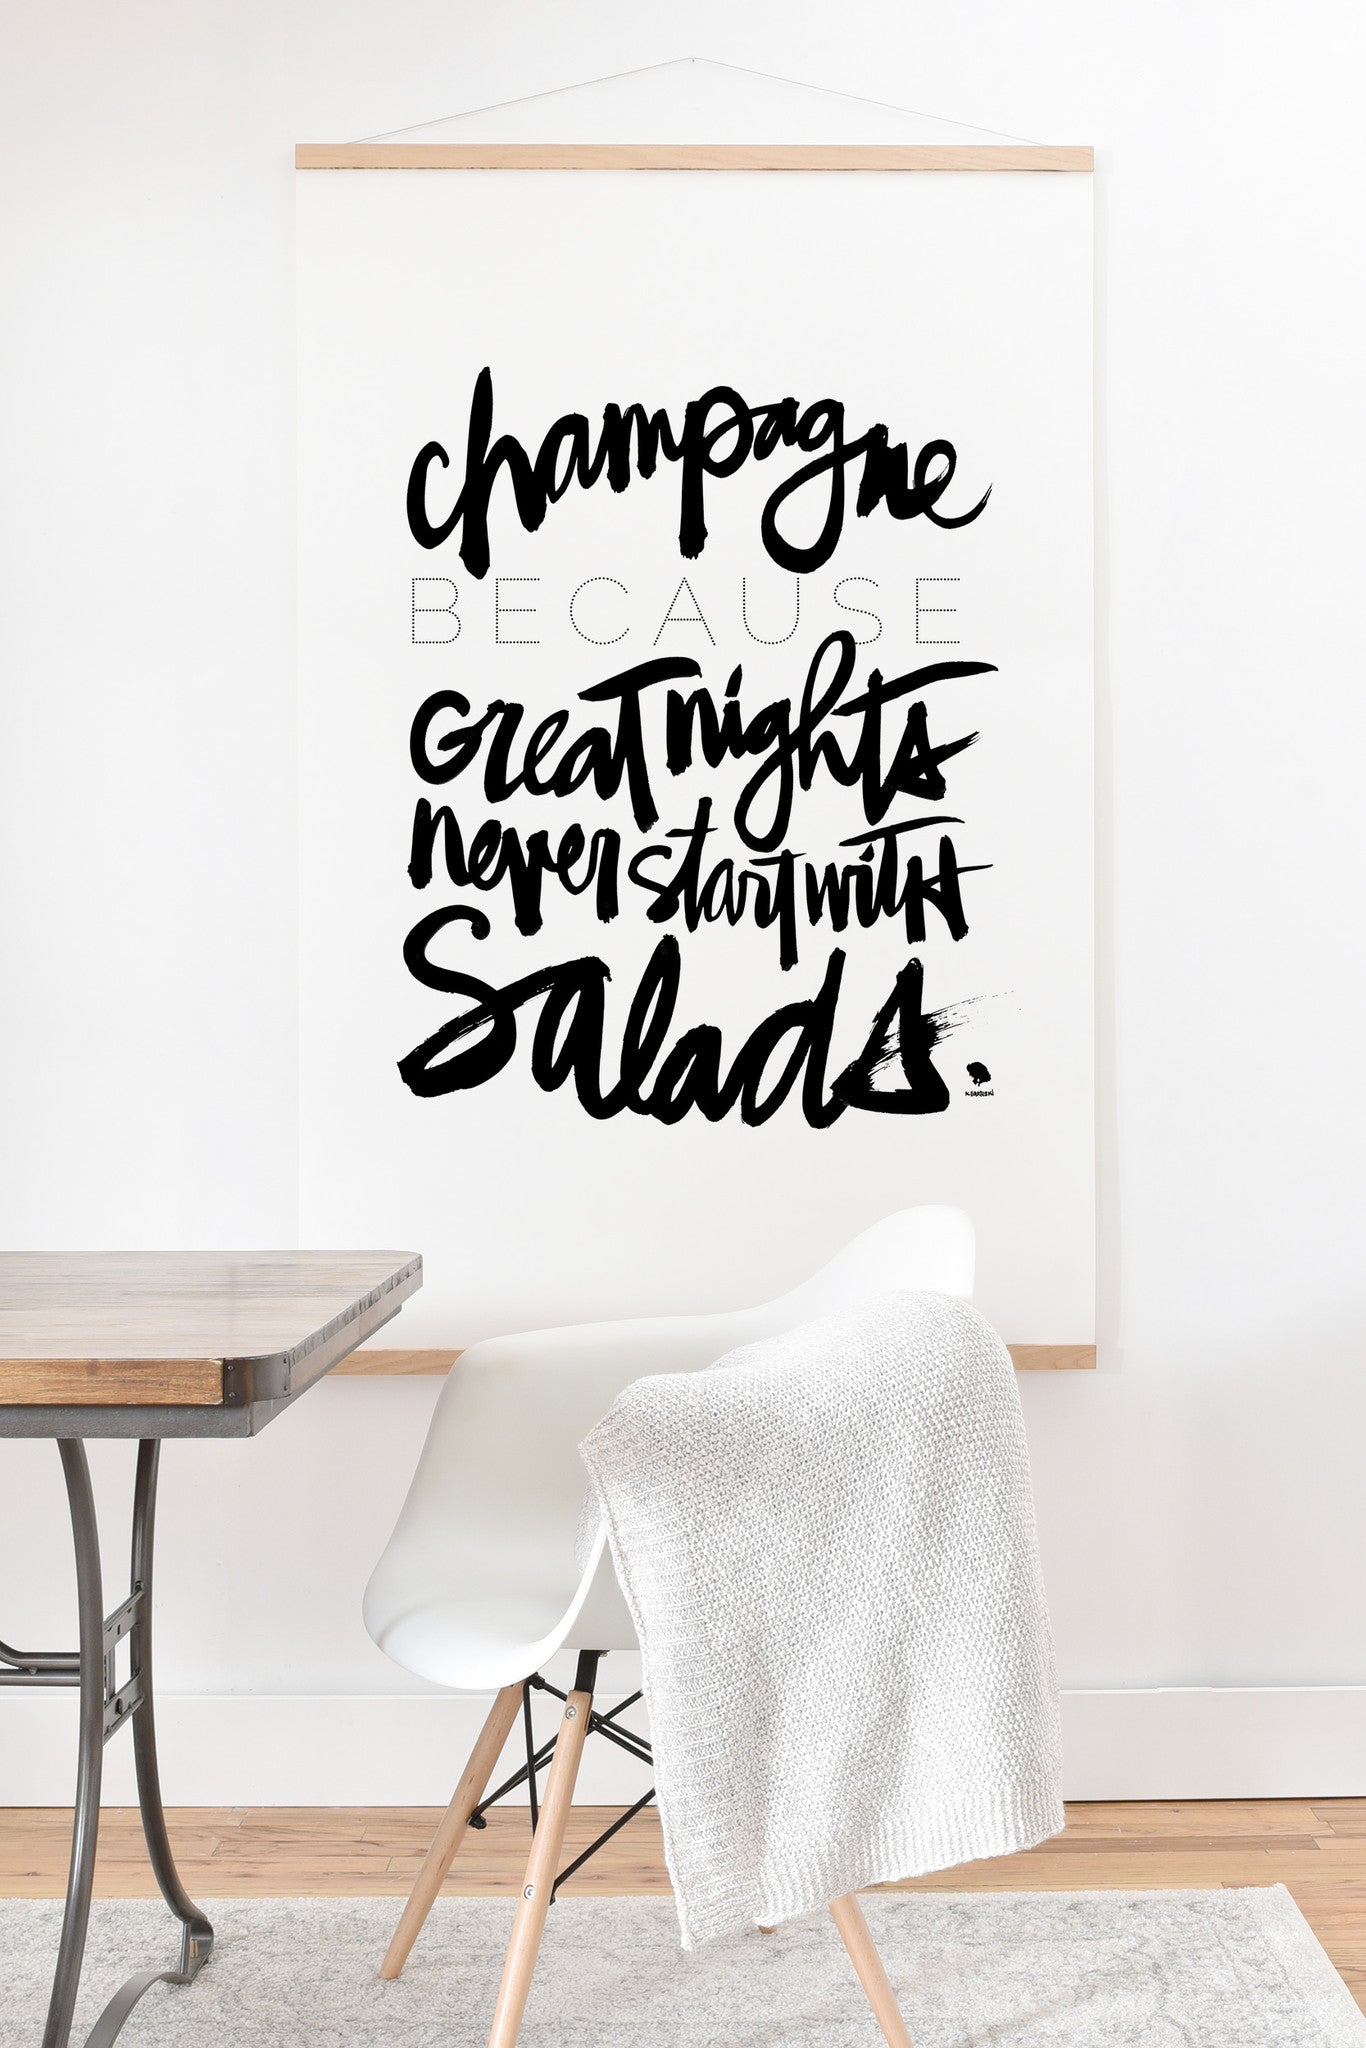 champagne
BECAUSE
Great nights
never start with
Salads.